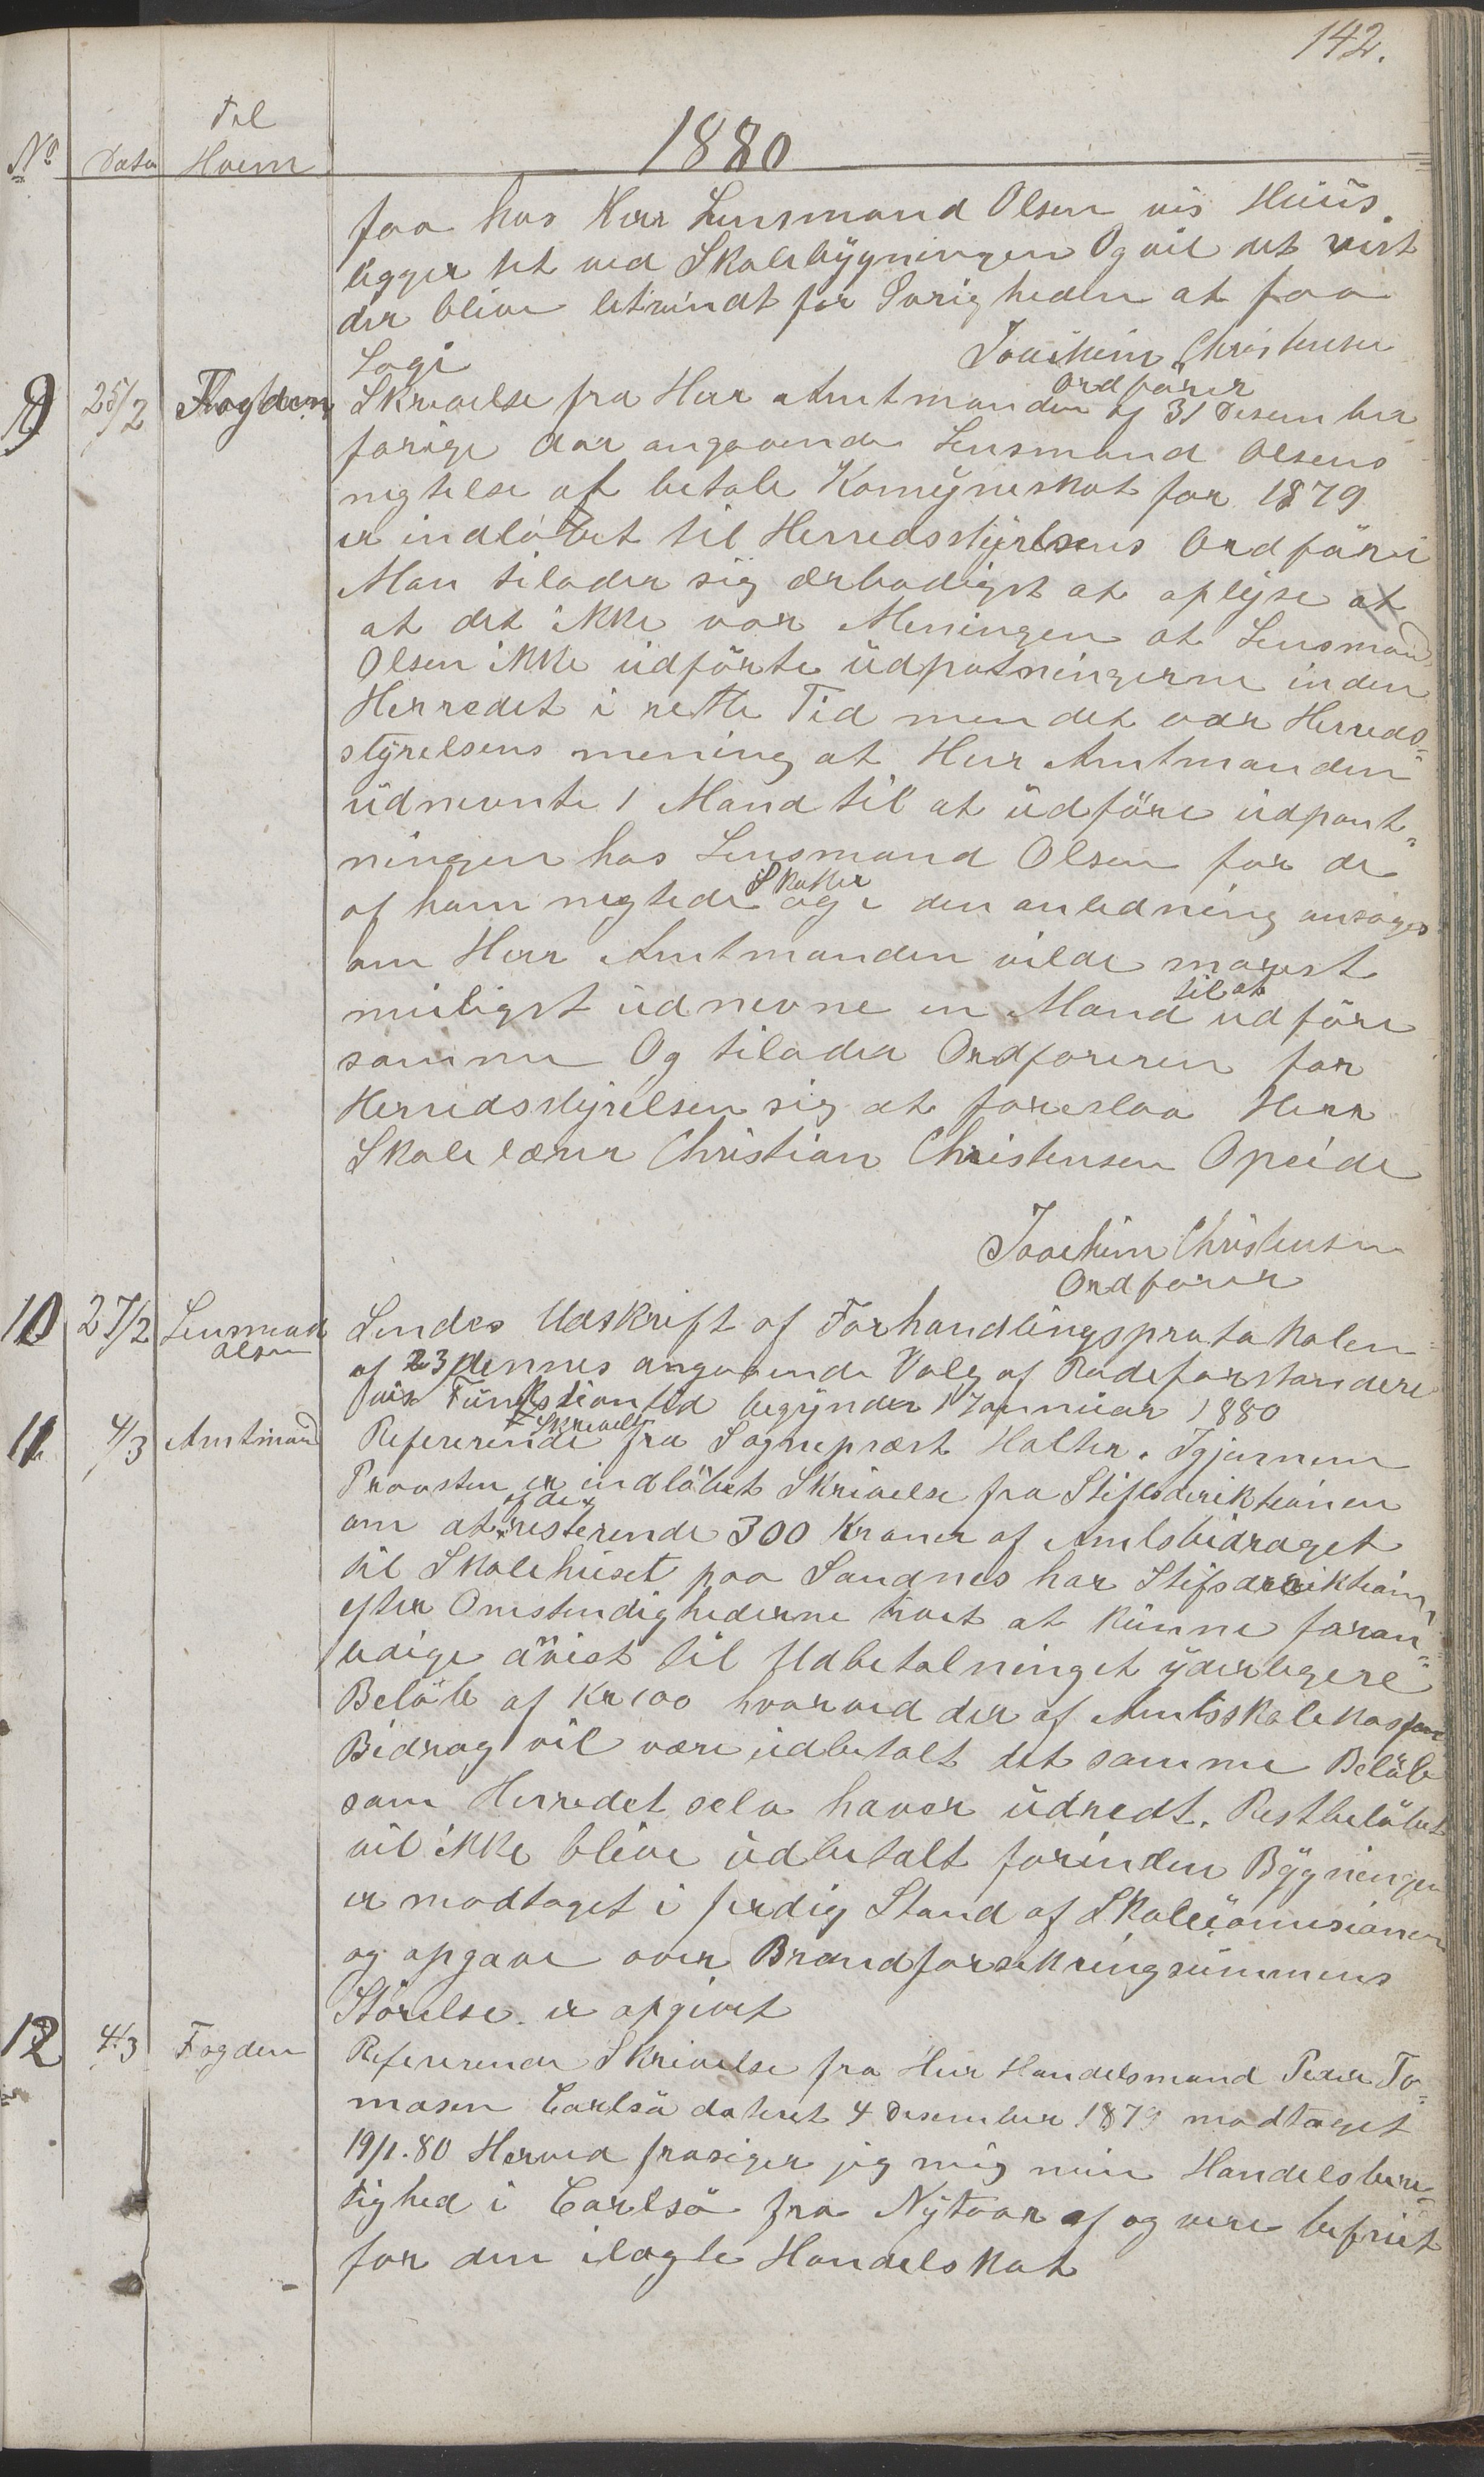 142.
Til
No Dato Hvem
1880
faa hos Herr Lensmand Olsen vis Huus.
ligger tet ved Skolebygningen Og vil det vist
der blive letvindt for Øvrigheden at faa
Logi
Joachim Christensen
Ordfører
9 25/2 Fogden Skrivelse fra Herr Amtmanden af 31 Desember
forige Aar angaaende Lensmand Olsens
negtelse af betale Komyneskat for 1879
er indløbet til Herredsstyrelsens Ordfører
Man tilader sig ærbødigst at oplyse at
at det ikke var Meningen at Lensmand
Olsen ikke udførte udpatningerne inden
Herredet i rette Tid men det var Herreds-
styrelsens mening at Herr Amtmanden
udnevnte 1 Mand til at udføre udpant-
ningen hos Lensmand Olsen for de
af ham negtede Skatter og i den anledning ansøges
om Herr Amtmanden vilde snarest
muligst udnevne en Mand til at udføre
samme Og tilader Ordføreren for
Herredsstyrelsen sig at foreslaa Herr
Skolelærer Christian Christensen Opeide
Joachim Christensen
Ordfører
10 27/2 Lensmad Olsen Sendes Udskrift af Forhandlingsprotokolen
af 23 dennes angaaende Valg af Rodeforstandere
vis Funkstionstid begynder 1 Januuar 1880
11 4/3 Amtmand Refererende Skrivelse fra Sogneprest Holter. Igjennem
Provsten er indløbet Skrivelse fra Stifsderiktionen
om at af de resterende 300 Kroner af Amtsbidraget
til Skolehuset paa Sandnes har Stifsderiktion,
efter Omstendighederne troet at kunne foran-
ledige anvist til Udbetalninget yderligere
Beløb af Kr 100 hvorved der af Amtsskolekassens
Bidrag vil være udbetalt det samme Beløb
som Herredet selv haver udredt. Restbeløbet
vil ikke blive udbetalt forinden Bygningen
er modtaget i ferdig Stand af Skolecomisionen
og opgave over Brandforsekringsummens
Størelse er opgivet
12 4/3 Fogden Refererende Skrivelse fra Herr Handelsmand Peder To-
masen Carlsø dateret 4 Desember 1879 modtaget
19/1.80 Herved frasiger jeg mig min Handelsbere-
tighed i Carlsø fra Nytaar af og være befriet
for den ilagte Handelskat